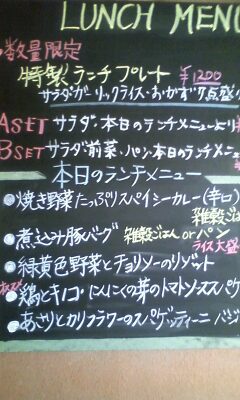 LUNCH MENU
数量限定
特製ランチプレート ¥1200
サラダ ガーリックライス・おかず7点盛り
A SET サラダ・本日のランチメニューより
B SET サラダ前菜・パン・本日のランチメニュー
本日のランチメニュー
●焼き野菜たっぷりスパイシーカレー(辛口)
雑穀ごはん
●煮込み豚バーグ 雑穀ごはん or パン
ライス大盛
●緑黄色野菜とチョリソーのリゾット
●鶏とキノコ・にんにくの芽のトマトソーススパゲ
●あさりとカリフラワーのスパゲッティーニ バジ